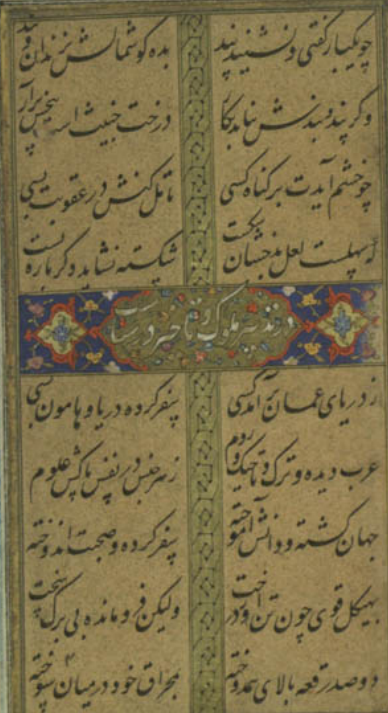 چو یکبار گفتی و نشنید پند بده گوشمالش بزندان و بند
وگر پند و بندش نیاید بکار درخت خبیث است بیخش برآر
چو خشم آیدت بر گناه کسی تامل کنش در عقوبت بسی
که سهلست لعل بدخشان شکست شکسته نشاید دگر باره بست
در تدبیر ملوک و تاخیر در سیاست
ز دریای عمان برآمد کسی سفر کرده دریا و هامون بسی
عرب دیده و ترک و تاجیک و روم ز هر جنس در نفس پاکش علوم
جهان گشته و دانش آموخته سفر کرده و صحبت اندوخته
بهیکل قوی چون تناور درخت ولیکن فرو مانده بی برگ سخت
دوصد رقعه بالای هم دوخته بحراق خود در میان سوخته